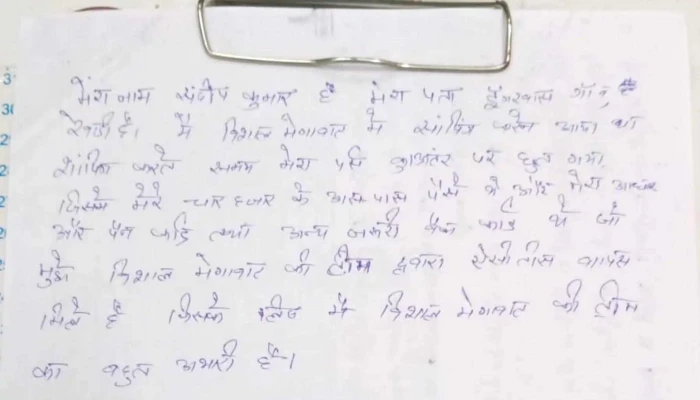 मेरा नाम संदीप कुमार है मेरा पता डुंगरवास गाँव, है
रेवाड़ी है। मैं विशाल मेगामार्ट में शॉपिंग करने आया था
शॉपिंग करते समय मेरा पर्स काउंटर पर छुट गया
जिसमे मेरे चार हजार के आस पास पैसे थे और मेरा आधार
और पैन कार्ड तथा अन्य जरूरी बैंक कार्ड थे जो
मुझे विशाल मेगामार्ट की टीम द्वारा वापिस
मिले है जिसके लिए मैं विशाल मेगामार्ट की टीम
का बहुत आभारी हूँ।
3
30
29